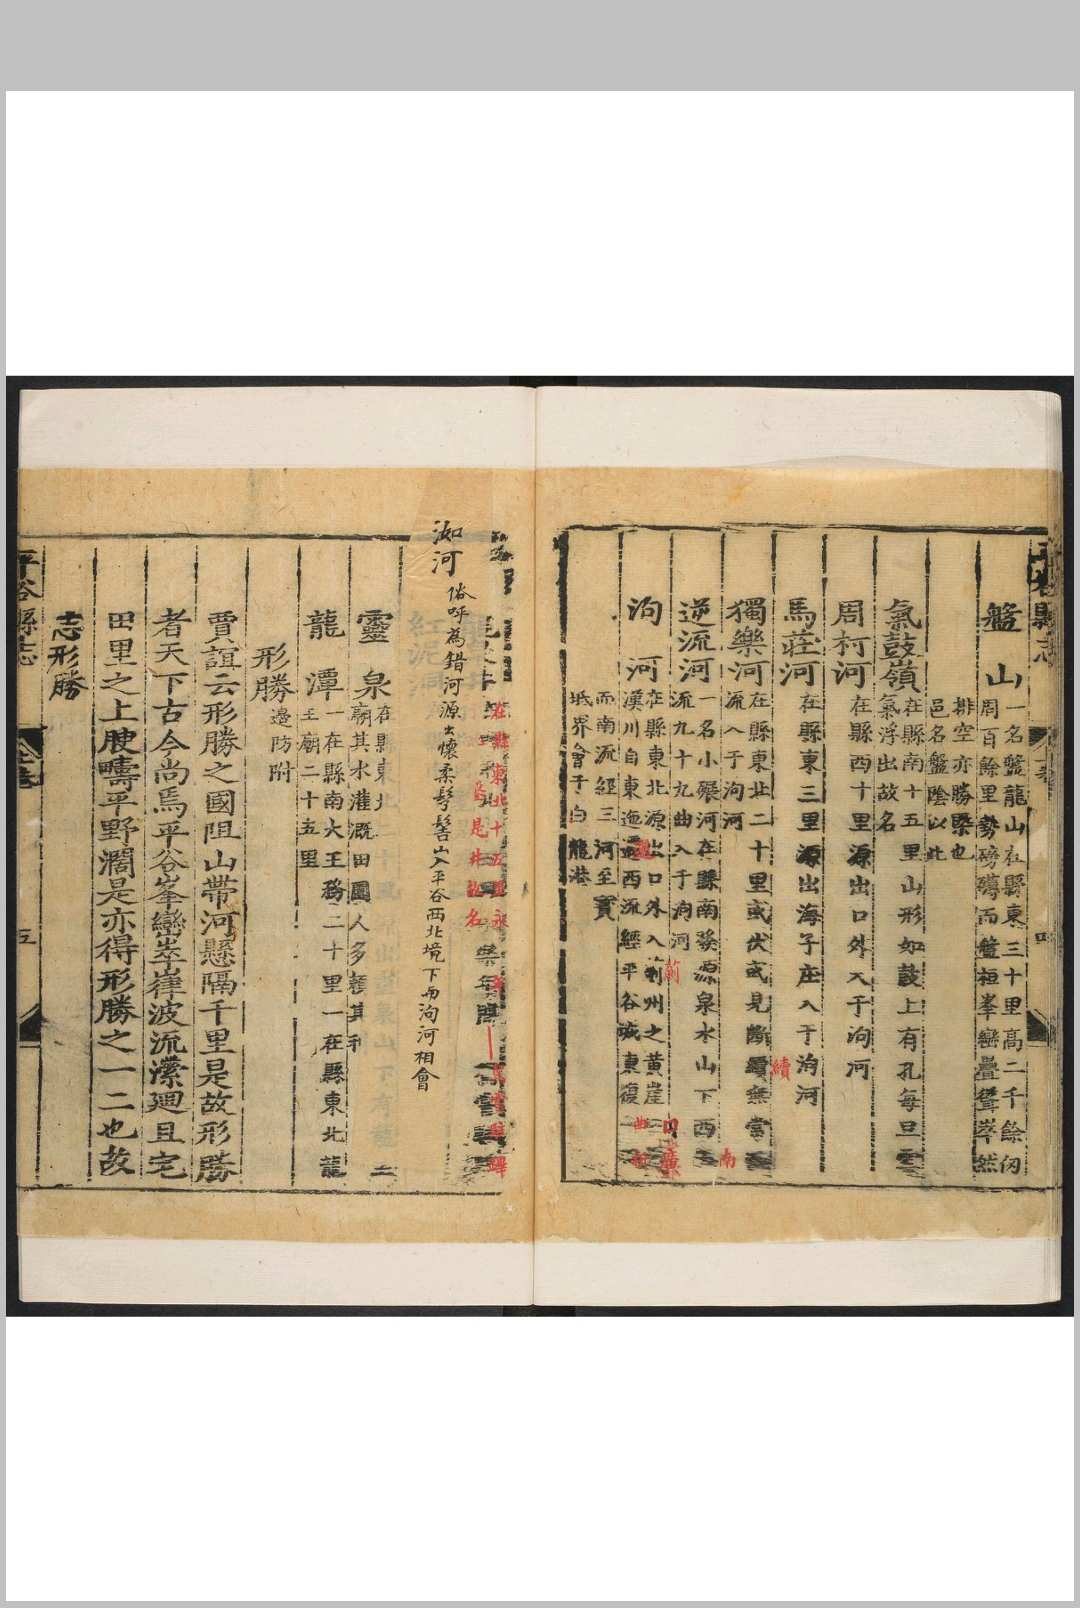 盤山 一名盤龍山在縣東三十里高二千餘仞
周百餘里勢磅礴而盤桓峯巒疊聳萃然
排空亦勝槩也
邑名盤陰以此
氣鼓嶺 在縣南十五里山形如鼓上有孔每旦雲
氣浮出故名
周柯河 在縣西十里源出口外入于泃河
馬莊河 在縣東三里源出海子庄入于泃河
獨樂河 在縣東北二十里或伏或見斷續無常
續
流入于泃河
逆流河 一名小碾河在縣南發源泉水山下西
南
流九十九曲入于泃河
泃河 在縣東北源出口外入薊州之黄崖口
薊
漢川自東迤西流經平谷城東復
而南流經三河至寳
坻界會于白龍港
平谷縣志
四
在縣東北十五里
是井故名
洳河 俗呼為錯河源出懷柔髣髻山入平谷西北境下與泃河相會
靈泉 在縣東北
廟其水灌溉田園人多頼其利
龍潭 一在縣南大王務二十里一在縣東北龍
王廟二十五里
形勝 邊防附
賈誼云形勝之國阻山帶河懸隔千里是故形勝
者天下古今尚焉平谷峯巒崒嵂波流瀠廻且宅
田里之上腴疇平野濶是亦得形勝之一二也故
志形勝
平谷縣志
五